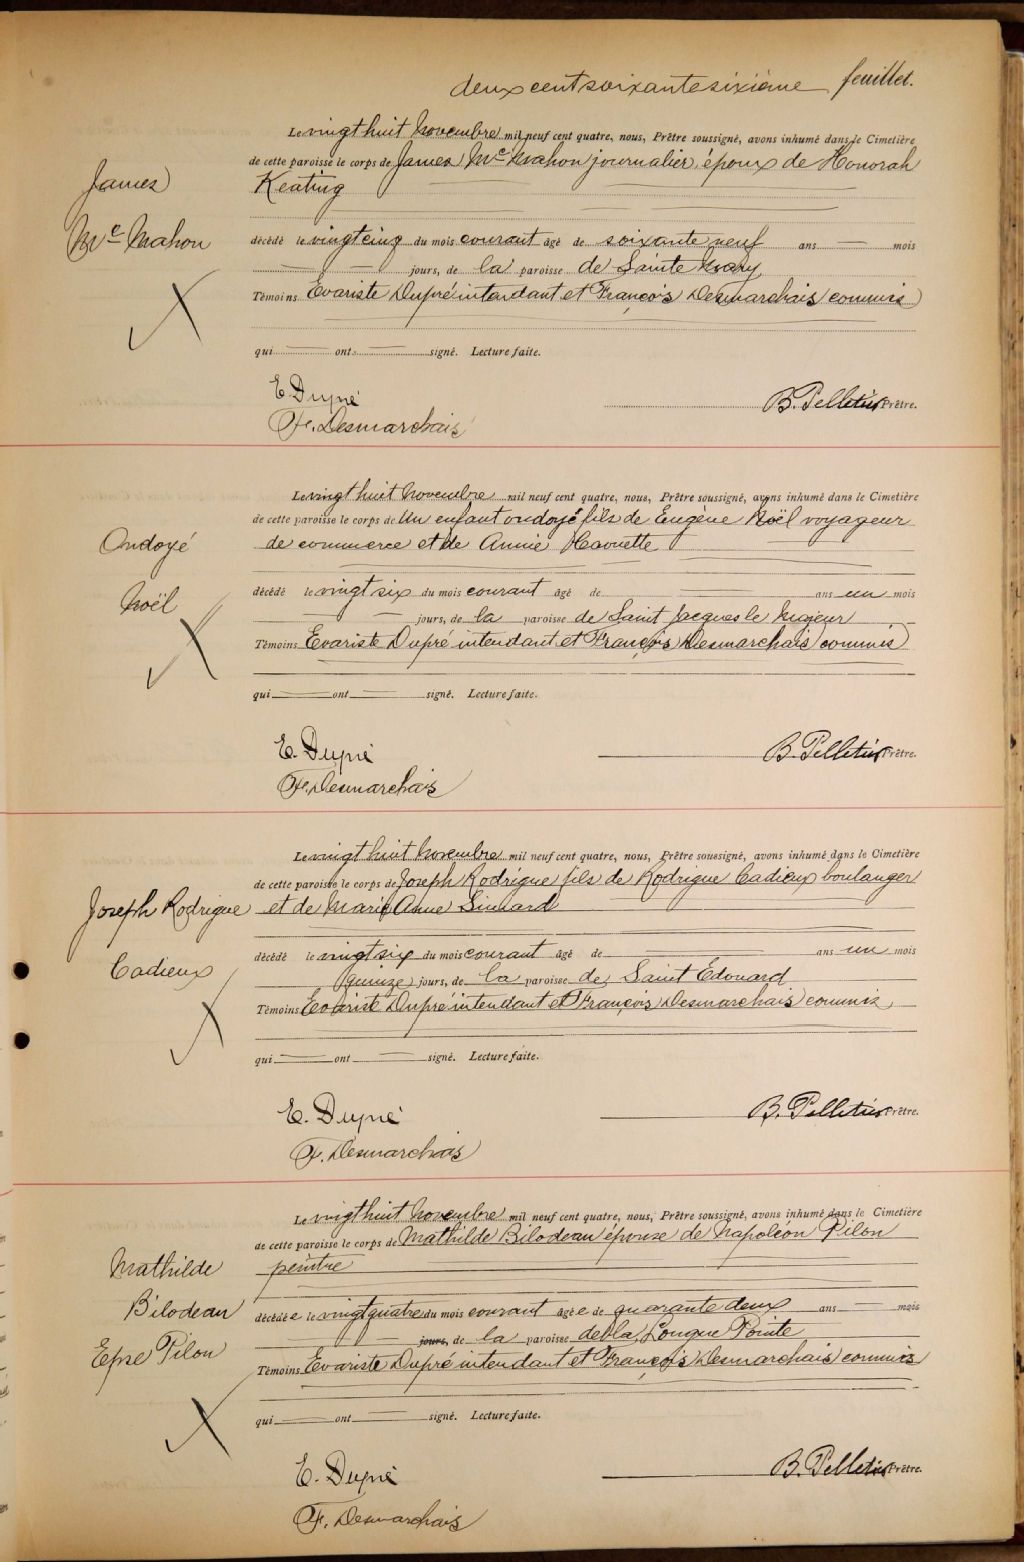 deux cent soixante sixième feuillet.
James
Mc Mahon
Le vingt huit Novembre mil neuf cent quatre, nous, Prêtre soussigné, avons inhumé dans le Cimetière
de cette paroisse le corps de James Mc Mahon journalier, époux de Honorah
Keating
décédé le vingt cinq du mois courant âgé de soixante neuf ans — mois
— jours, de la paroisse de Sainte Mary
Témoins Evariste Dupré intendant et François Desmarchais commis
qui — ont — signé. Lecture faite.
E. Dupré
B. Pelletier Prêtre.
F. Desmarchais
Ondoyé
Noël
Le vingt huit Novembre mil neuf cent quatre, nous, Prêtre soussigné, avons inhumé dans le Cimetière
de cette paroisse le corps de Un enfant ondoyé fils de Eugène Noël voyageur
de commerce et de Annie
décédé le vingt six du mois courant âgé de — ans un mois
— jours, de la paroisse de Saint Jacques le Majeur
Témoins Evariste Dupré intendant et François Desmarchais commis
qui — ont — signé. Lecture faite.
E. Dupré
B. Pelletier Prêtre.
F. Desmarchais
Joseph Rodrigue
Cadieux
Le vingt huit Novembre mil neuf cent quatre, nous, Prêtre soussigné, avons inhumé dans le Cimetière
de cette paroisse le corps de Joseph Rodrigue fils de Rodrigue Cadieux boulanger
et de Marie Anne Simard
décédé le vingt six du mois courant âgé de — ans un mois
quinze jours, de la paroisse de Saint Edouard
Témoins Evariste Dupré intendant et François Desmarchais commis
qui — ont — signé. Lecture faite.
E. Dupré
B. Pelletier Prêtre.
F. Desmarchais
Mathilde
Bilodeau
Epse Pilon
Le vingt huit Novembre mil neuf cent quatre, nous, Prêtre soussigné, avons inhumé dans le Cimetière
de cette paroisse le corps de Mathilde Bilodeau épouse de Napoléon Pilon
peintre
décédée le vingt quatre du mois courant âgée de quarante deux ans — mois
— jours, de la paroisse de la Longue Pointe
Témoins Evariste Dupré intendant et François Desmarchais commis
qui — ont — signé. Lecture faite.
E. Dupré
B. Pelletier Prêtre.
F. Desmarchais